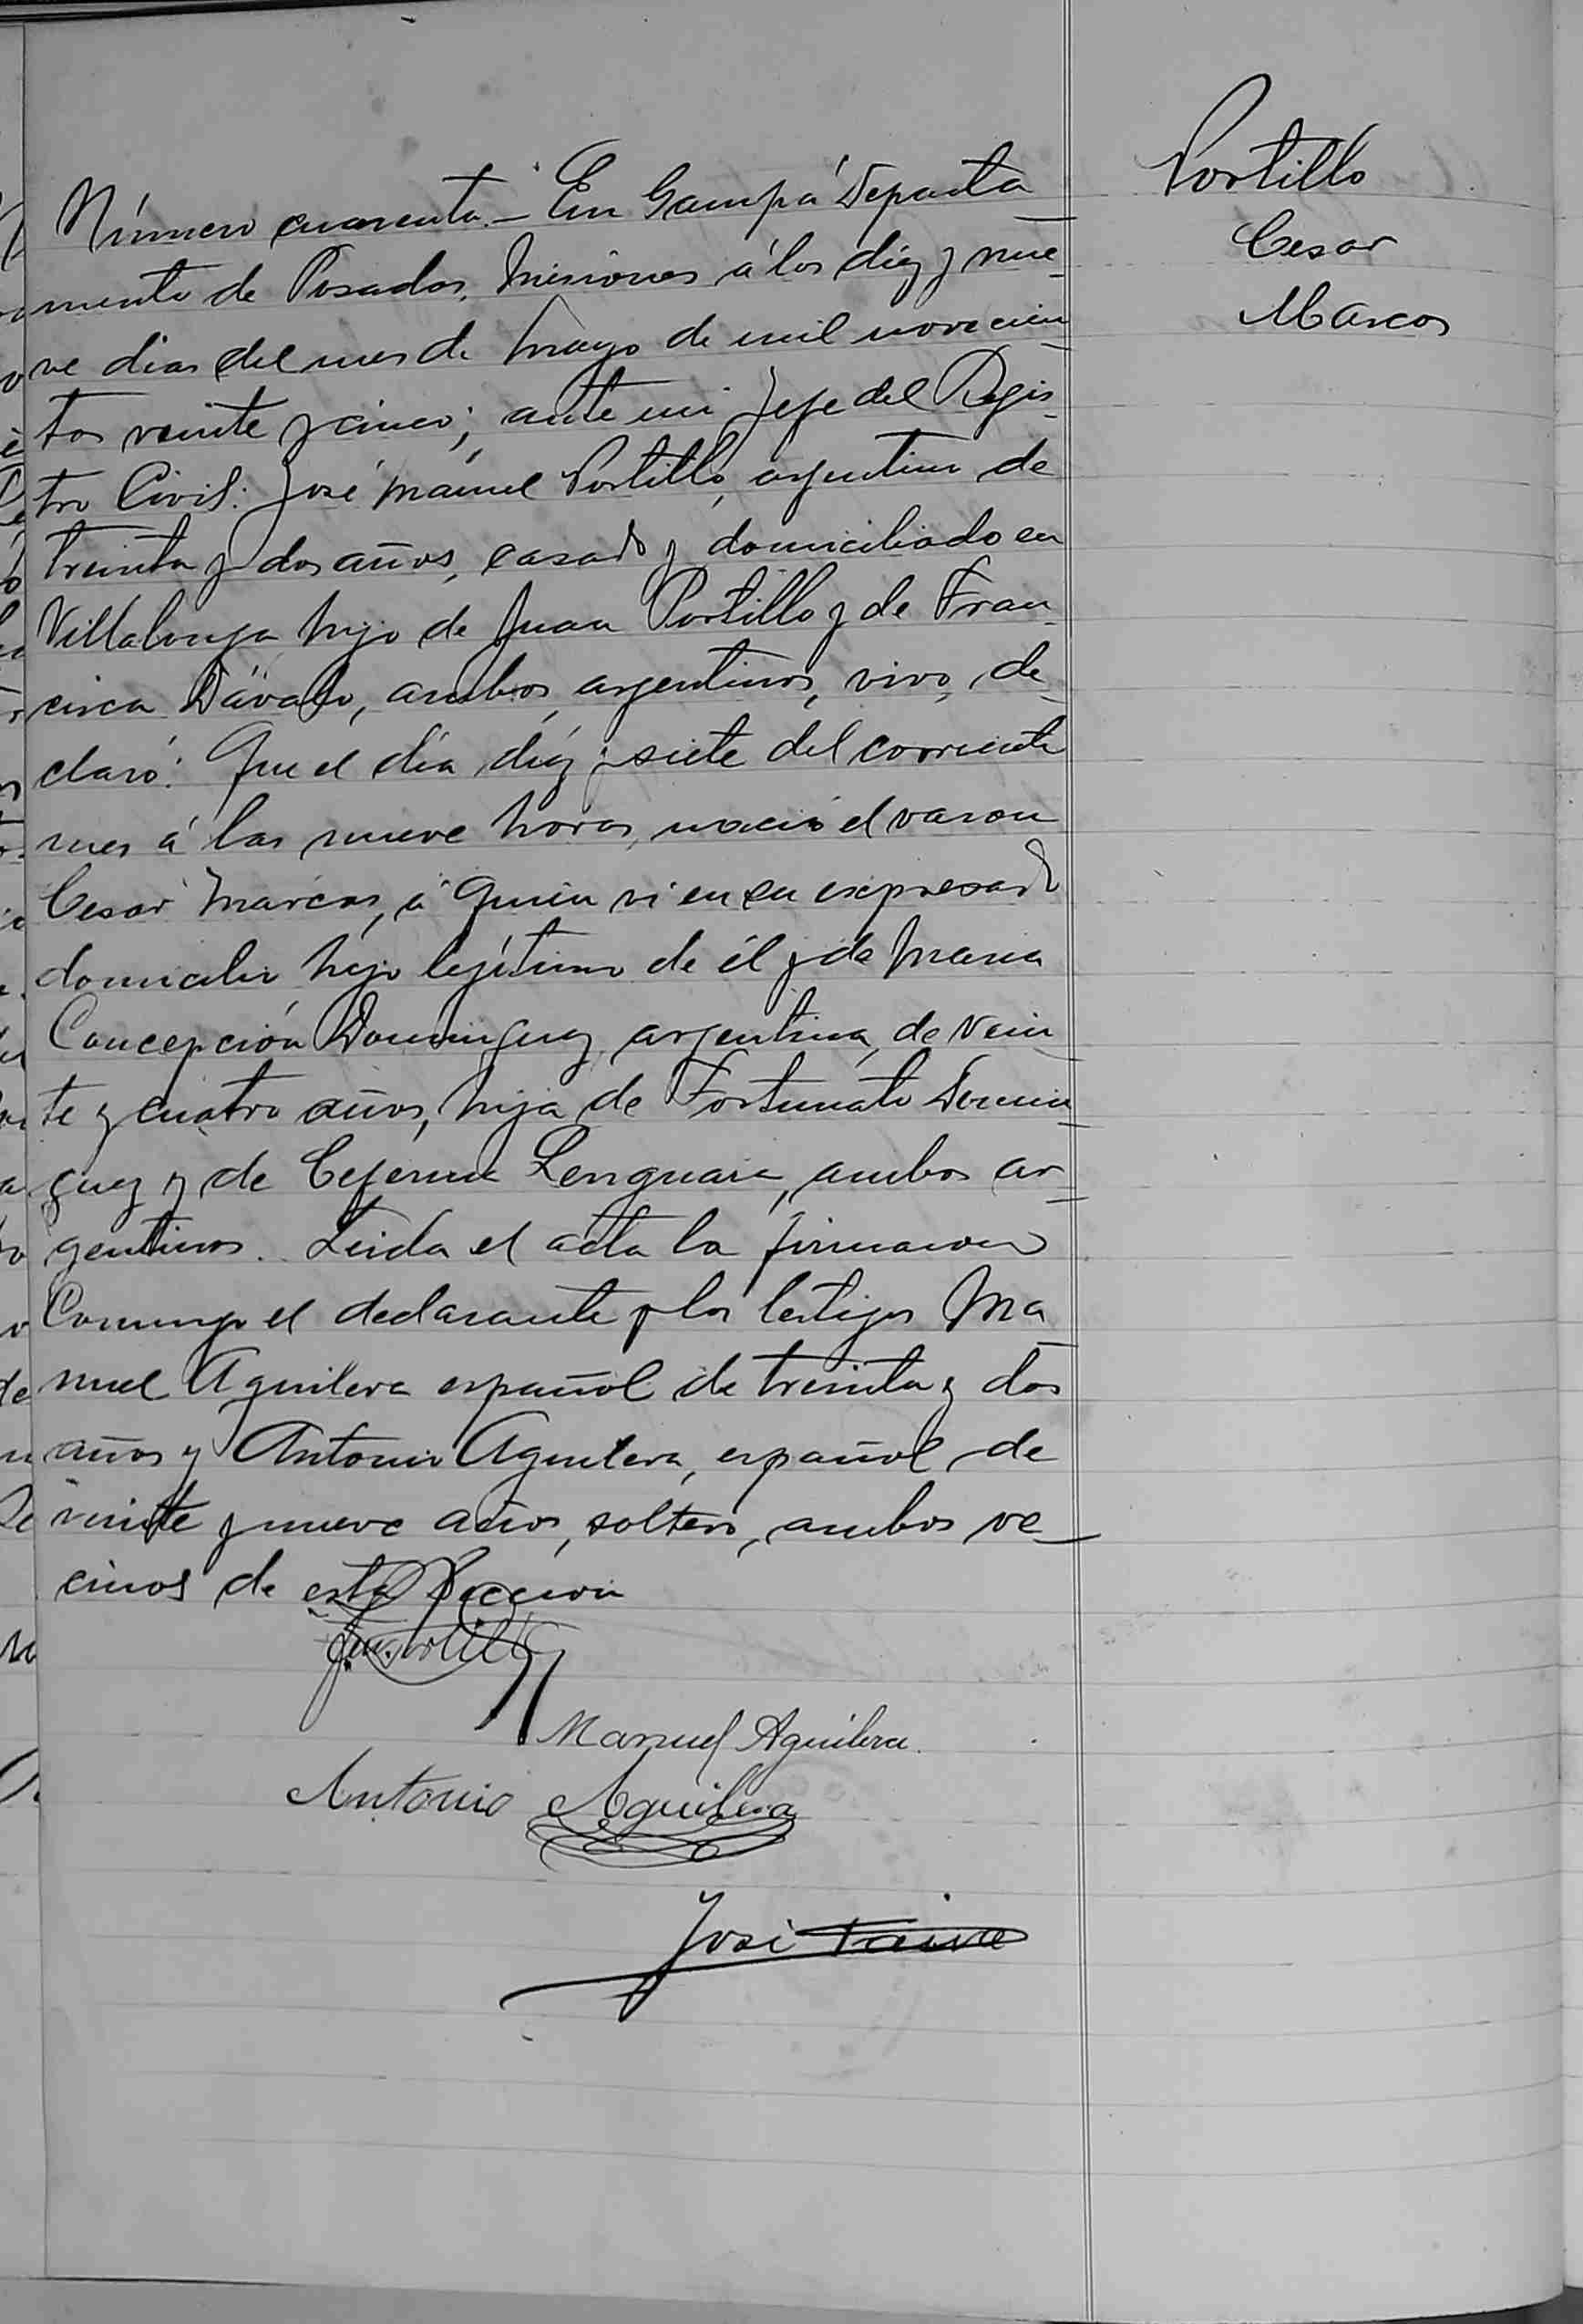 Portillo
Cesar
Marcos
Número cuarenta.- En Garupá Departa
mento de Posadas, Misiones á los diez y nue-
ve dias del mes de Mayo de mil novecien-
tos veinte y cinco; ante mi Jefe del Regis-
tro Civil: José Manuel Portillo, argentino de
treinta y dos años, casado y domiciliado en
Villalonga hijo de Juan Portillo y de Fran-
cisca Dávalo, ambos argentinos, vivo, de-
claró: Que el día diez y siete del corriente
mes á las nueve horas, nació el varon
Cesar Marcos, á quien vi en su expresado
domicilio hijo lejítimo de él y de Maria
Concepción Dominguez argentina, de vein
te y cuatro años, hija de Fortunato Domin-
guez y de Ceferina Lenguaza, ambos ar-
gentinos. Leida el acta la firmaron
Conmigo el declarante y los testigos Ma
nuel Aguilera español de treinta y dos
años y Antonio Aguilera, español de
veinte y nueve años, soltero, ambos ve-
cinos de esta Sección
Manuel Aguilera.
Antonio Aguilera
José